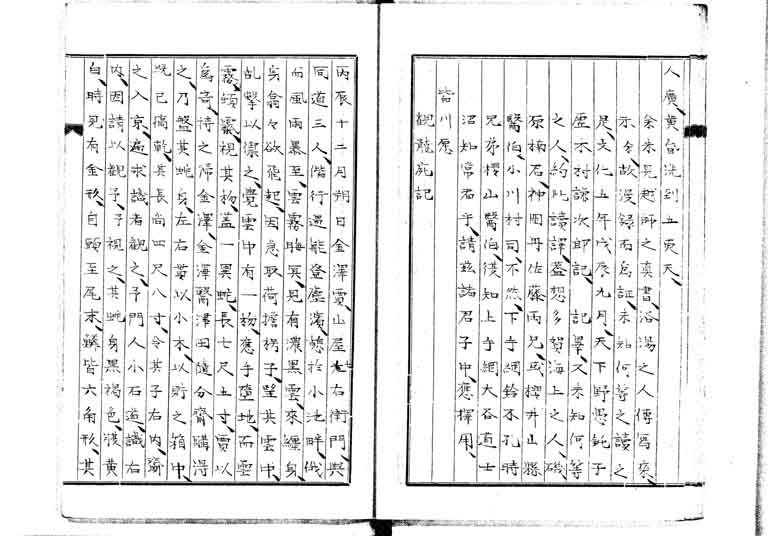 人廣黄昏洗到五更天
余未見越師之真書浴湯之人傳写来
示余故漫録而為証未知何等之讀之
是文化五年戊辰九月天下野愚鈍子
歴木村謙次郎記記畢又未知何等
之人約此讀譯蓋想多賀海上之人磯
原楠石神田丹佐藤両兄或櫻井山縣
醫伯小川村司不然下寺綱鈴木孔時
兄弟櫻山醫伯後知上寺綱大谷道士
沼知常君乎請茲諸君子中應擇用
皆川愿
観龍死記
丙辰十二月朔日金澤賈山屋太右衛門与
同道三人偕行過能登塩濱憩於小池畔俄
而風雨暴至雲霧晦冥見有濃黒雲来纏身
身翕々欲飛起因急取荷擔楞子望其雲中
乱撃以禦之覚雲中有一物應手墮地而雲
霧頓霽視其物蓋一異蛇長七尺五寸賈以
為奇持之歸金澤金澤醫津田随分齋購得
之乃盤其蛇身左右貫以小木以貯之箱中
既已痛乾其長尚四尺八寸令其子右内齎
之入京遍求識者観之予門人小石道識右
内因請以観予予視之其蛇身黒褐色淡黄
白時見有金形自頭至尾末鱗皆六角形其